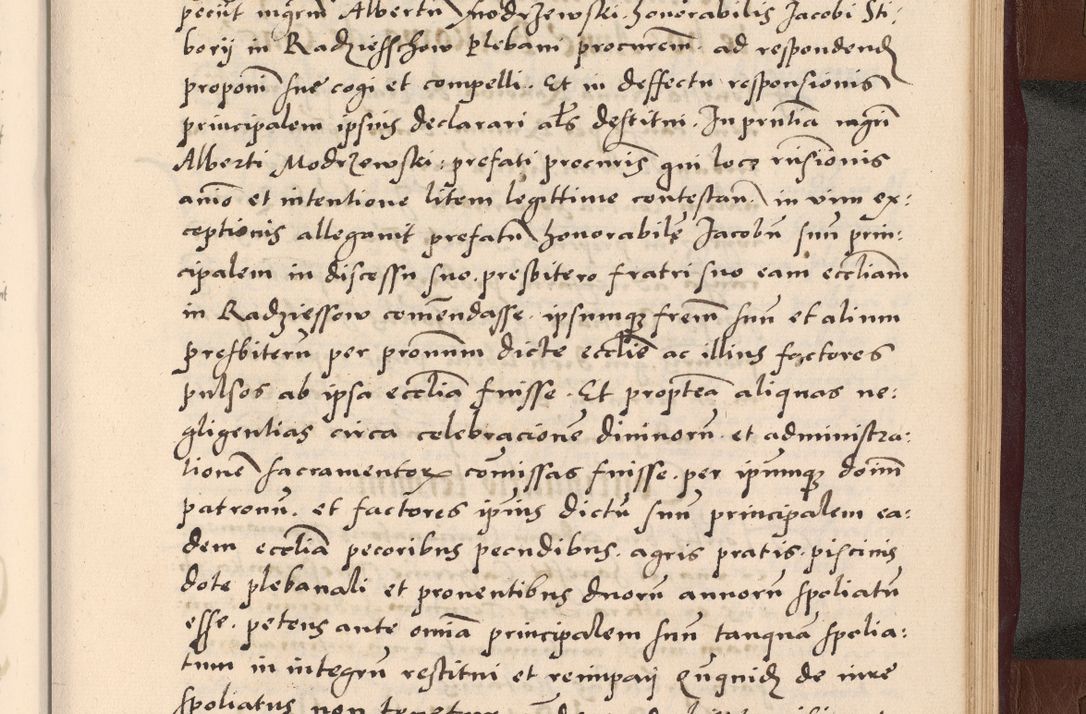 peciit mgrm Albertu Modrzewski honorabilis Jacobi Sti:
borij in Radziesschow plebani procurem ad respondend
proponi sue cogi et compelli. Et in deffectu responsionis
principalem ipsius declarari als destitui. In pntia mgri
Alberti Modrzewski: prefati procuris qui loco rnsionis
anio et intentione litem legittime contestan in vim ex:
ceptionis allegavit prefatu honorabile Jacobu suu prin:
cipalem in discessu suo presbitero fratri suo eam eccliam
in Radziessow comendasse. ipsumq frem suu et alium
presbiteru per pronum dicte ecclie ac illius factores
pulsos ab ipsa ecclia fuisse. Et proptea aliquas ne:
gligentias circa celebracione divinoru et administra:
tione sacramentor comissas fuisse. per ipumq domi
patronu. et factores ipius dictu suu principalem ea:
dem ecclia pecoribus pecudibus. agris pratis. piscinis
dote plebanali et proventibus duoru annoru spoliatu
esse. petens ante omia principalem suu tanqua spolia:
tum in integru restitui et reimpaij Cuquid de iure
spoliatus non